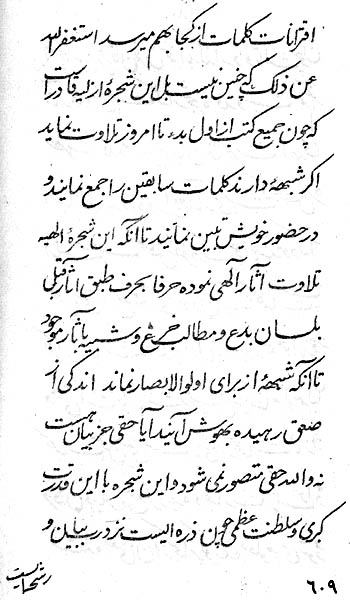 اقترانات کلمات از کجا بهم میرسد استغفر الله
عن ذلک که چنین نیست بل این شجرهٔ ازلیه قادر است
که چون جمیع کتب از اول بدء تا امروز تلاوت نماید
اگر شبههٔ دارند کلمات سابقین را جمع نمایند و
در حضور خویش تبین نمایند تا آنکه این شجرهٔ الهیه
تلاوت آثار آلهی نموده حرفا بحرف طبق آثار قبلی
بلسان بدع و مطالب و بآثار موجود
تا آنکه شبههٔ از برای اولو الابصار نماند اندکی از
صعق رهیده بهوش آئید آیا حقی جز بیان هست
نه والله حقی متصور نمی شود و این شجره با این قدرت
کبری و سلطنت عظمی چون ذره ایست نزد رب بیان و
رشحات
٦٠٩